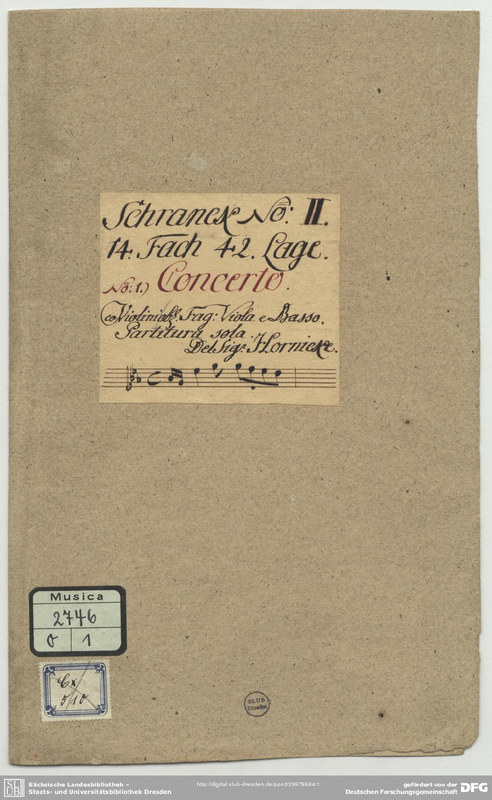 Schranck No: II.
14. Fach 42. Lage.
No: 1.) Concerto.
co Violini Fag: Viola e Basso.
Partitura sola.
Del Sigr: Hornick.
Musica
2746
O 1
Cx
510
SLUB
Dresden
Sächsische Landesbibliothek –
Staats- und Universitätsbibliothek Dresden
http://digital.slub-dresden.de/ppn333979664/1
gefördert von der
Deutschen Forschungsgemeinschaft
DFG